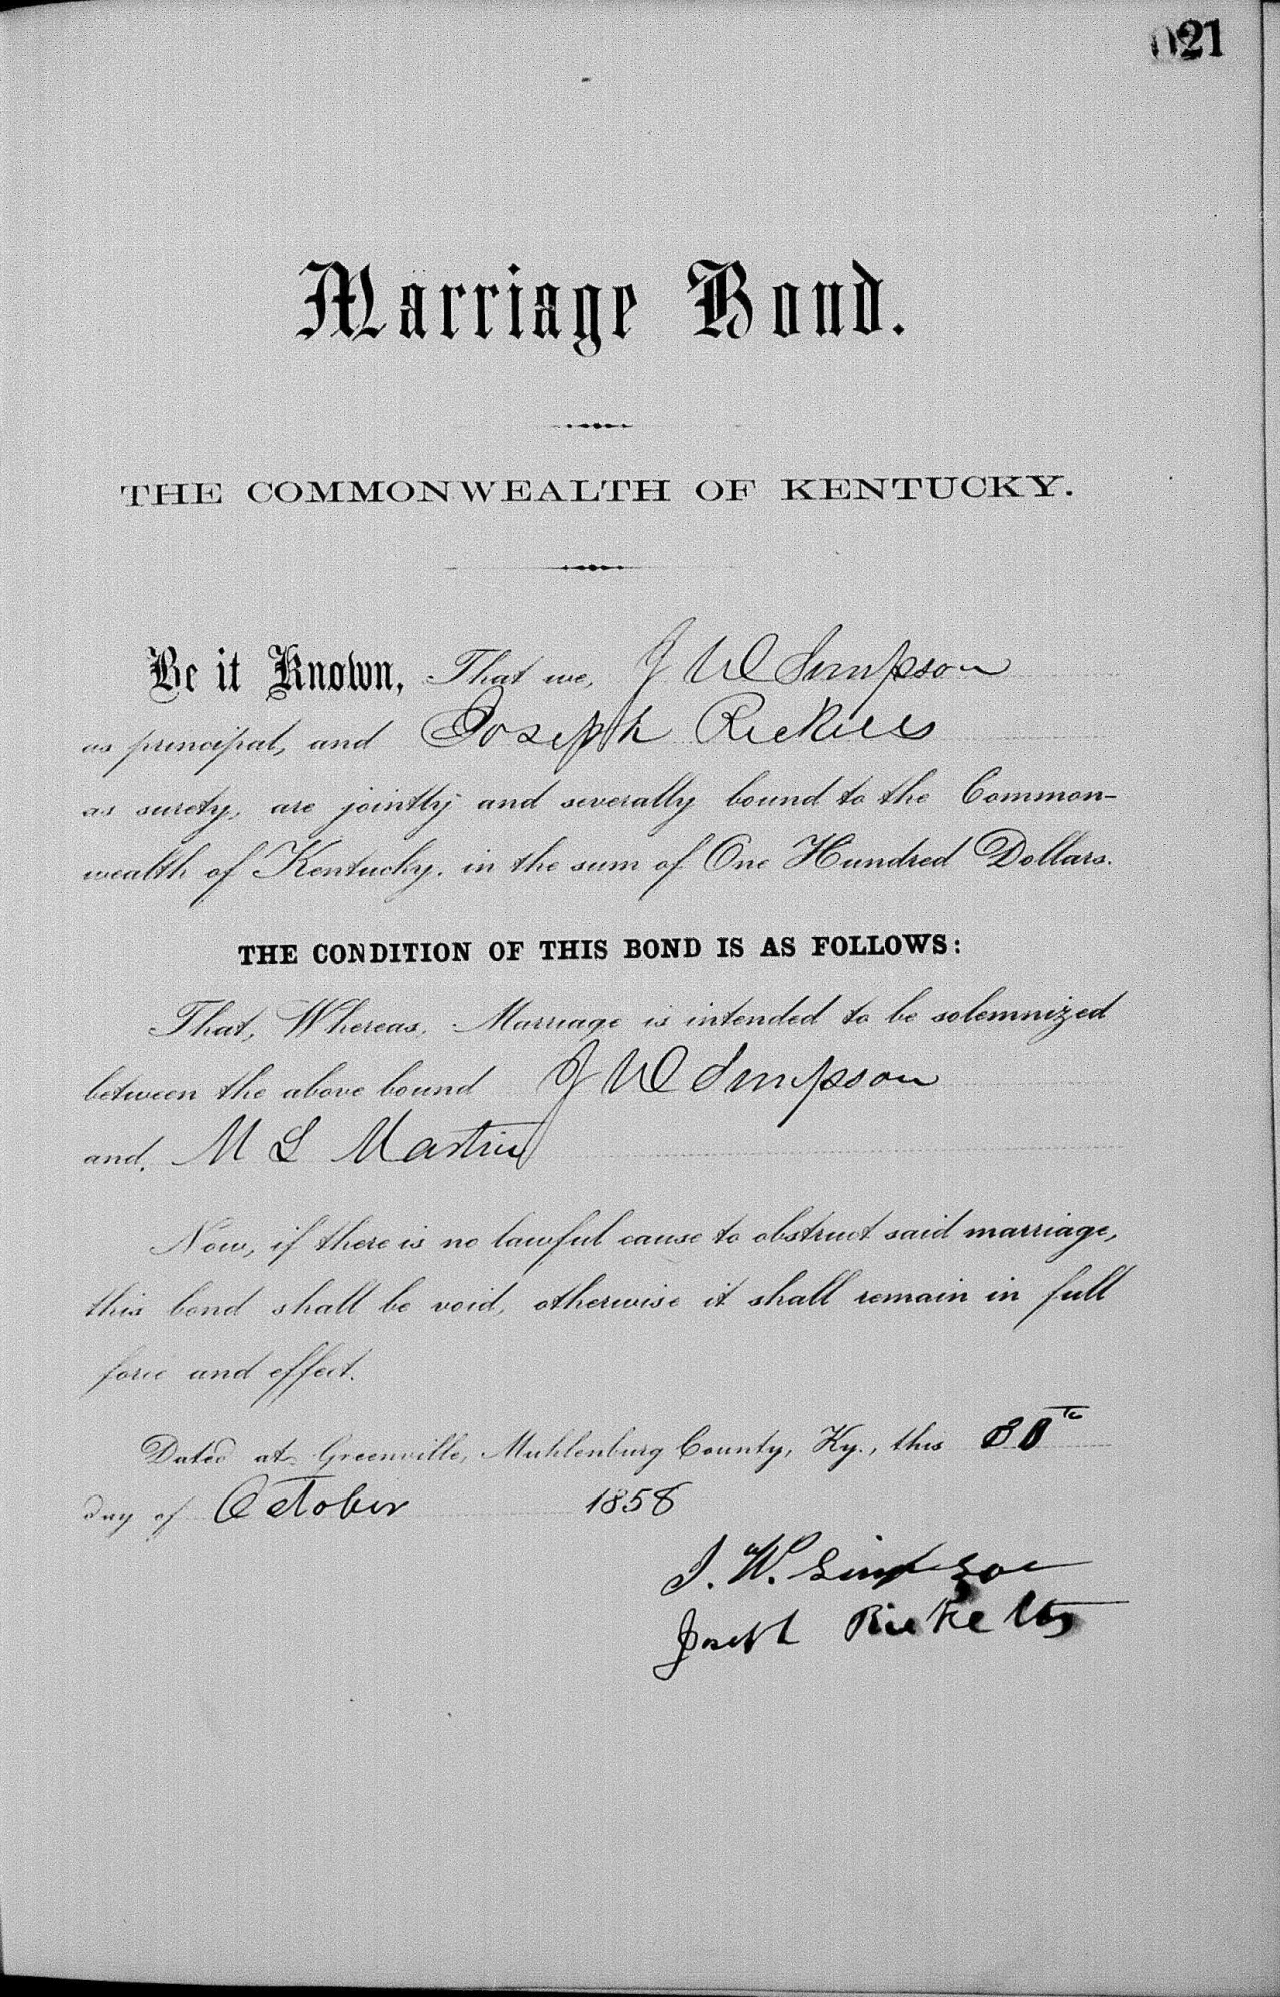 21
Marriage Bond.
THE COMMONWEALTH OF KENTUCKY.
Be it Known, That we, J W Simpson
as principal, and Joseph Ricketts
as surety, are jointly and severally bound to the Common-
wealth of Kentucky, in the sum of One Hundred Dollars.
THE CONDITION OF THIS BOND IS AS FOLLOWS:
That, Whereas, Marriage is intended to be solemnized
between the above bound J W Simpson
and, M L Martin
Now, if there is no lawful cause to obstruct said marriage,
this bond shall be void, otherwise it shall remain in full
force and effect.
Dated at Greenville, Muhlenburg County, Ky., this
day of October 1858
J. W. Simpson
Joseph Ricketts